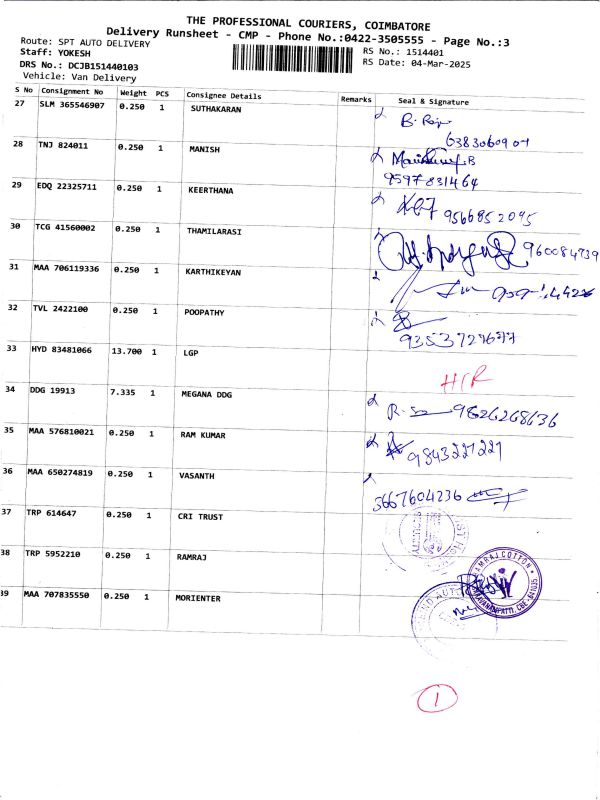 THE PROFESSIONAL COURIERS, COIMBATORE
Delivery Runsheet - CMP - Phone No.:0422-3505555 - Page No.:3
Route: SPT AUTO DELIVERY
RS No.: 1514401
Staff: YOKESH
RS Date: 04-Mar-2025
DRS No.: DCJB151440103
Vehicle: Van Delivery
S No Consignment No Weight PCS Consignee Details Remarks Seal & Signature
27 SLM 365546907 0.250 1 SUTHAKARAN
28 TNJ 824011 0.250 1 MANISH
9597831464
29 EDQ 22325711 0.250 1 KEERTHANA
9566852095
30 TCG 41560002 0.250 1 THAMILARASI
31 MAA 706119336 0.250 1 KARTHIKEYAN
32 TVL 2422100 0.250 1 POOPATHY
33 HYD 83481066 13.700 1 LGP
34 DDG 19913 7.335 1 MEGANA DDG
35 MAA 576810021 0.250 1 RAM KUMAR
36 MAA 650274819 0.250 1 VASANTH
3667604236
37 TRP 614647 0.250 1 CRI TRUST
38 TRP 5952210 0.250 1 RAMRAJ
RAMRAJ COTTON
39 MAA 707835550 0.250 1 MORIENTER
1